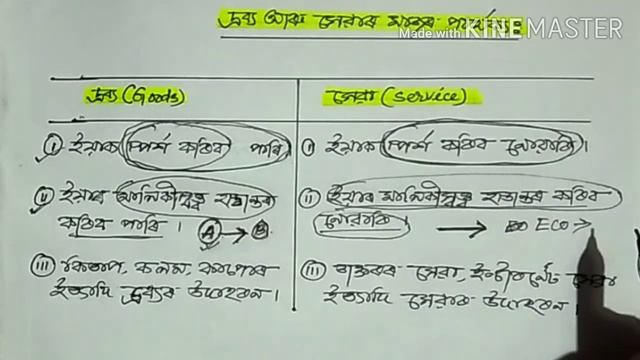 দ্ৰব্য আৰু সেৱাৰ মাজৰ পাৰ্থক্য
Made with KINEMASTER
দ্ৰব্য (Goods)
i) ইয়াক স্পৰ্শ কৰিব পাৰি
ii) ইয়াৰ মালিকীস্বত্ব হস্তান্তৰ
কৰিব পাৰি । A → B
iii) কিতাপ, কলম, কাপোৰ
ইত্যাদি দ্ৰব্যৰ উদাহৰণ ।
সেৱা (service)
i) ইয়াক স্পৰ্শ কৰিব নোৱাৰি ।
ii) ইয়াৰ মালিকীস্বত্ব হস্তান্তৰ কৰিব
নোৱাৰি । → ECO
iii) ডাক্তৰৰ সেৱা, ইণ্টাৰনেট সেৱা
ইত্যাদি সেৱাৰ উদাহৰণ ।